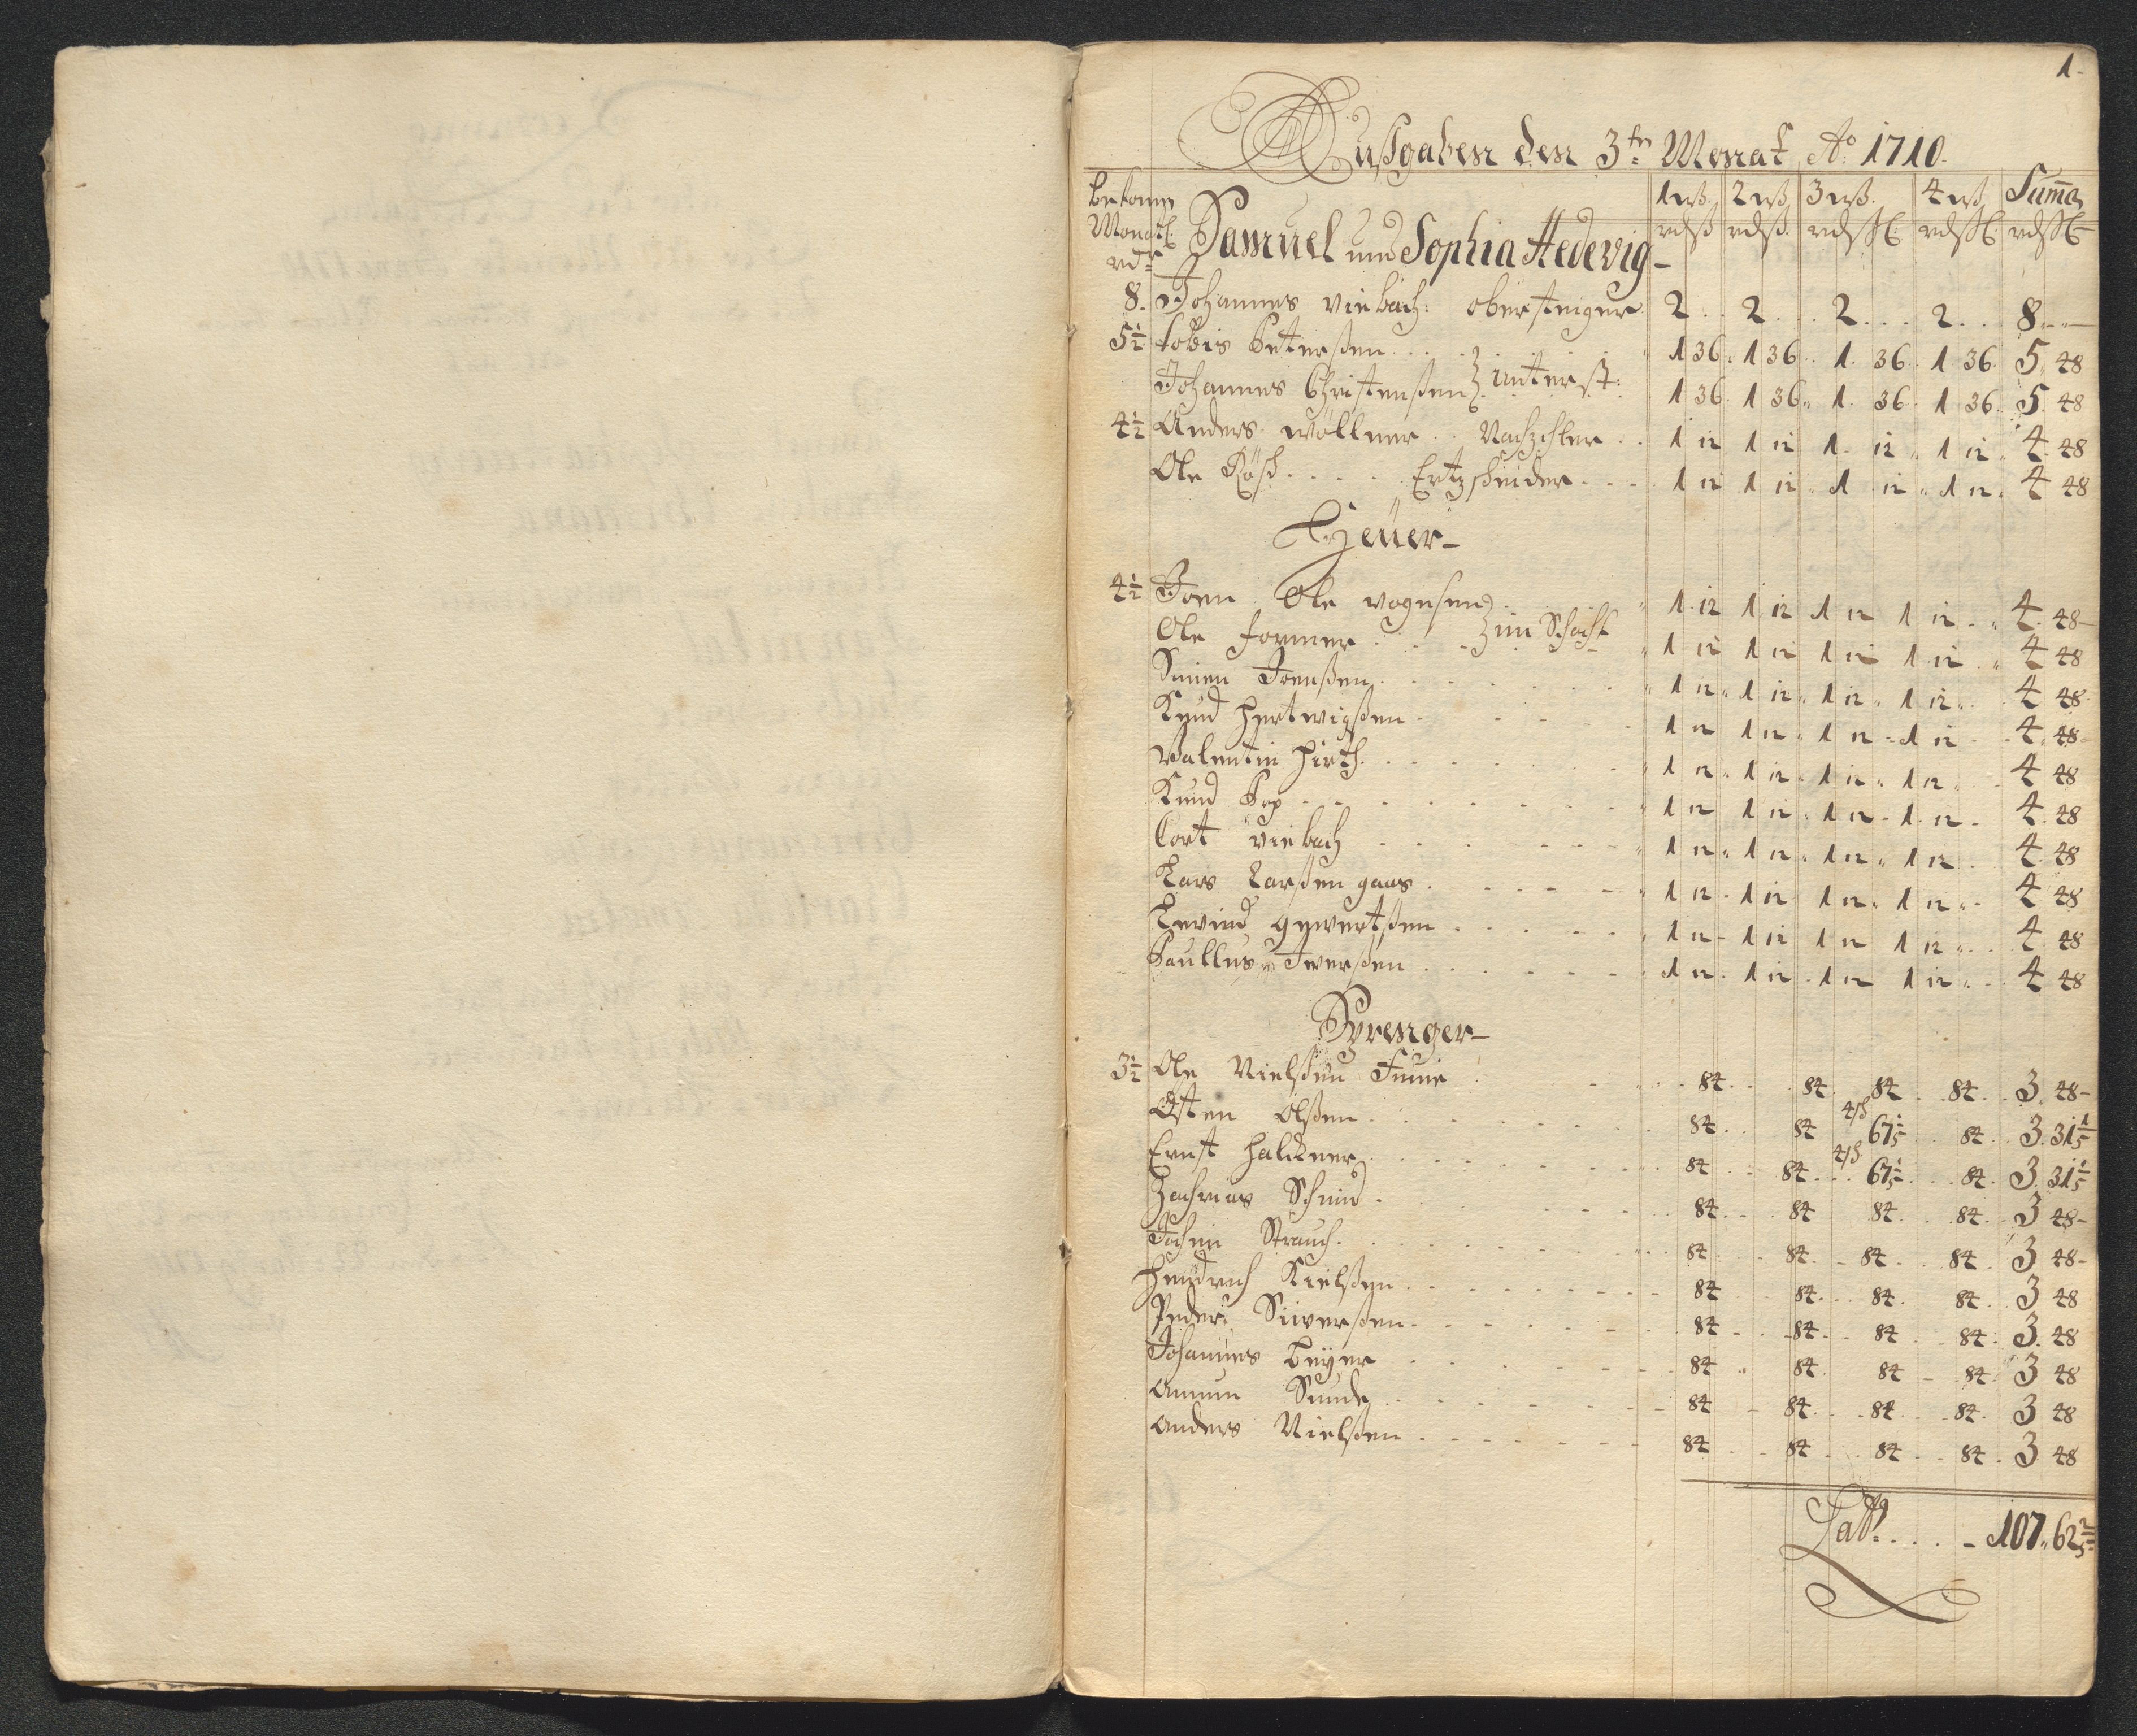 1.
Außgaben den 3ten Monat Ao 1710.
bekomn 1 wß. 2 wß 3 wß. 4 wß Summa
Monatl. rdß rdß rdßl. rdßl. rdßl
rdr Samuel und Sophia Hedevig
8. Johannes Viebach: obersteiger 2 .. 2 ... 2 ... 2 .. 8 - -
5½ Tobis Peterßen 1 36. 1 36. 1. 36. 1 36. 5. 48
Johannes Christenßen } Unterst: 1 36. 1 36. 1. 36. 1 36. 5. 48
4½ Anders Wöllner .. Nachzehler .. 1 12 1 12 1. 12. 1 12. 4. 48
Ole Röß ..... Ertzscheider ... 1 12 1 12. 1 12. 1 12. 4 48
Heüer
4½ Joen Ole Vognsen 1. 12 1 12 1 12 1 12 4. 48
Ole former ... } im Schacht 1 12 1 12 1 12 1 12 4 48
Simen Joenßen 1 12. 1 12. 1 12. 1 12. 4 48.
Knud Hertwigßen 1 12 1 12. 1 12 - 1 12 4. 48
Valentin Hirth 1 12. 1 12. 1 12. 1 12. 4 48
Knud 1 12 1 12. 1 12 - 1. 12 4. 48
Cort Viebach 1 12. 1 12. 1 12. 1 12 4. 48
Lars Larßen gaas 1 12. 1 12 1 12. 1 12. 4 48
Tevind Gewertßen 1 12 - 1 12 1 12 1 12. 4. 48
Paullus Iwerßen 1 12. 1 12. 1 12 1 12. 4 48
Sprenger
3½ Ole Nielßen 84. 84. 84 84. 3. 48
Osten Olßen 84. 84 4ß 67⅕ 84. 3. 31⅕
Ernst Haldner 84 84. 4ß 67⅕ 84. 3. 31⅕
Zacharias Schmid 84. 84 84. 84. 3 48
Jochim Strauch 84 84. 84. 84. 3 48
Hendrich Nielßen 84 84. 84. 84. 3 48
Peder Siiverßen 84 84. 84 84. 3. 48
Johannes Beyer 84 84. 84 84. 3 48
Amum Sunde 84 84. 84 84. 3 48
Anders Nielßen 84 84 84 84. 3 48
Latg .... 107. 62⅖